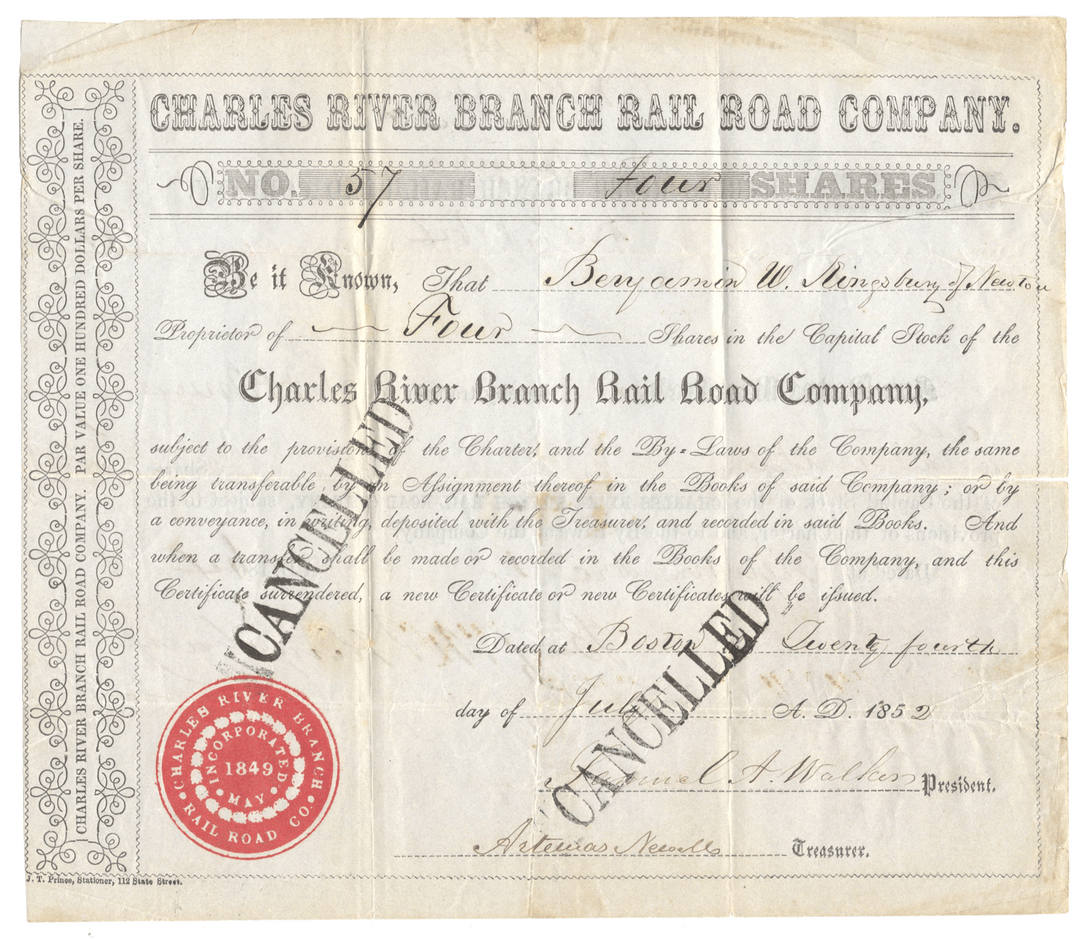 CHARLES RIVER BRANCH RAIL ROAD COMPANY.
NO. 57 Four SHARES.
Be it Known, That Benjamin W. Kingsbury of Newton
Proprietor of Four Shares in the Capital Stock of the
Charles River Branch Rail Road Company,
subject to the provisions of the Charter, and the By=Laws of the Company, the same
being transferable, by an Assignment thereof in the Books of said Company; or by
a conveyance, in writing, deposited with the Treasurer, and recorded in said Books. And
when a transfer shall be made or recorded in the Books of the Company, and this
Certificate surrendered, a new Certificate or new Certificates will be issued.
Dated at Boston Twenty fourth
day of July A. D. 1852
Samuel A. Walker President.
Artemas Newell Treasurer.
CANCELLED
CANCELLED
CHARLES RIVER BRANCH
RAIL ROAD CO.
INCORPORATED
1849
MAY
CHARLES RIVER BRANCH RAIL ROAD COMPANY. PAR VALUE ONE HUNDRED DOLLARS PER SHARE.
J. T. Prince, Stationer, 112 State Street.